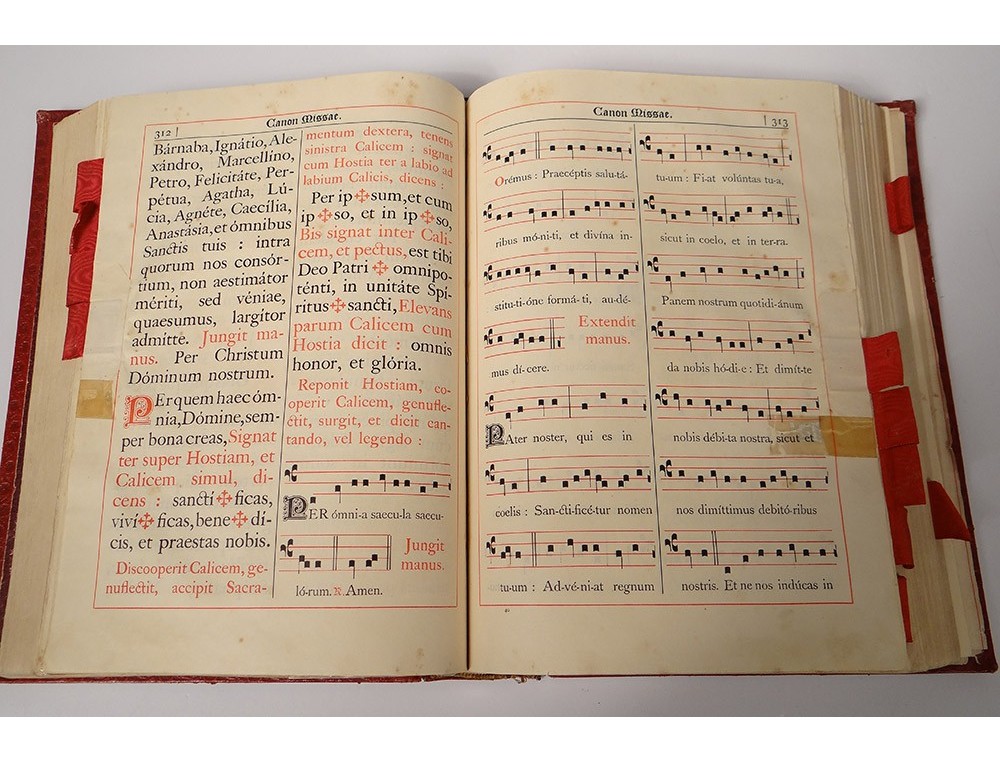 312
Canon Missae.
Bárnaba, Ignátio, Ale-
xándro, Marcellíno,
Petro, Felicitáte, Per-
pétua, Agatha, Lú-
cia, Agnéte, Caecília,
Anastásia, et ómnibus
Sanctis tuis : intra
quorum nos consór-
tium, non aestimátor
mériti, sed véniae,
quaesumus, largítor
admítte. Jungit ma-
nus. Per Christum
Dóminum nostrum.
PEr quem haec óm-
nia, Dómine, sem-
per bona creas, Signat
ter super Hostiam, et
Calicem simul, di-
cens : sanctí✠ficas,
viví✠ficas, bene✠dí-
cis, et praestas nobis.
Discooperit Calicem, ge-
nuflectit, accipit Sacra-
mentum dextera, tenens
sinistra Calicem : signat
cum Hostia ter a labio ad
labium Calicis, dicens :
Per ip✠sum, et cum
ip✠so, et in ip✠so,
Bis signat inter Cali-
cem, et pectus, est tibi
Deo Patri ✠ omnipo-
ténti, in unitáte Spí-
ritus✠sancti, Elevans
parum Calicem cum
Hostia dicit : omnis
honor, et glória.
Reponit Hostiam, co-
operit Calicem, genufle-
ctit, surgit, et dicit can-
tando, vel legendo :
PER ómni-a saecu-la saecu-
Jungit
manus.
ló-rum. ℟. Amen.
Canon Missae.
313
Orémus : Praecéptis salu-tá-
ribus mó-ni-ti, et divína in-
stitu-ti-óne formá-ti, au-dé-
Extendit
manus.
mus dí-cere.
PAter noster, qui es in
coelis : San-cti-ficé-tur nomen
tu-um : Ad-vé-ni-at regnum
tu-um : Fi-at volúntas tu-a,
sicut in coelo, et in ter-ra.
Panem nostrum quotidi-ánum
da nobis hó-di-e : Et dimít-te
nobis débi-ta nostra, sicut et
nos dimíttimus debitó-ribus
nostris. Et ne nos indúcas in